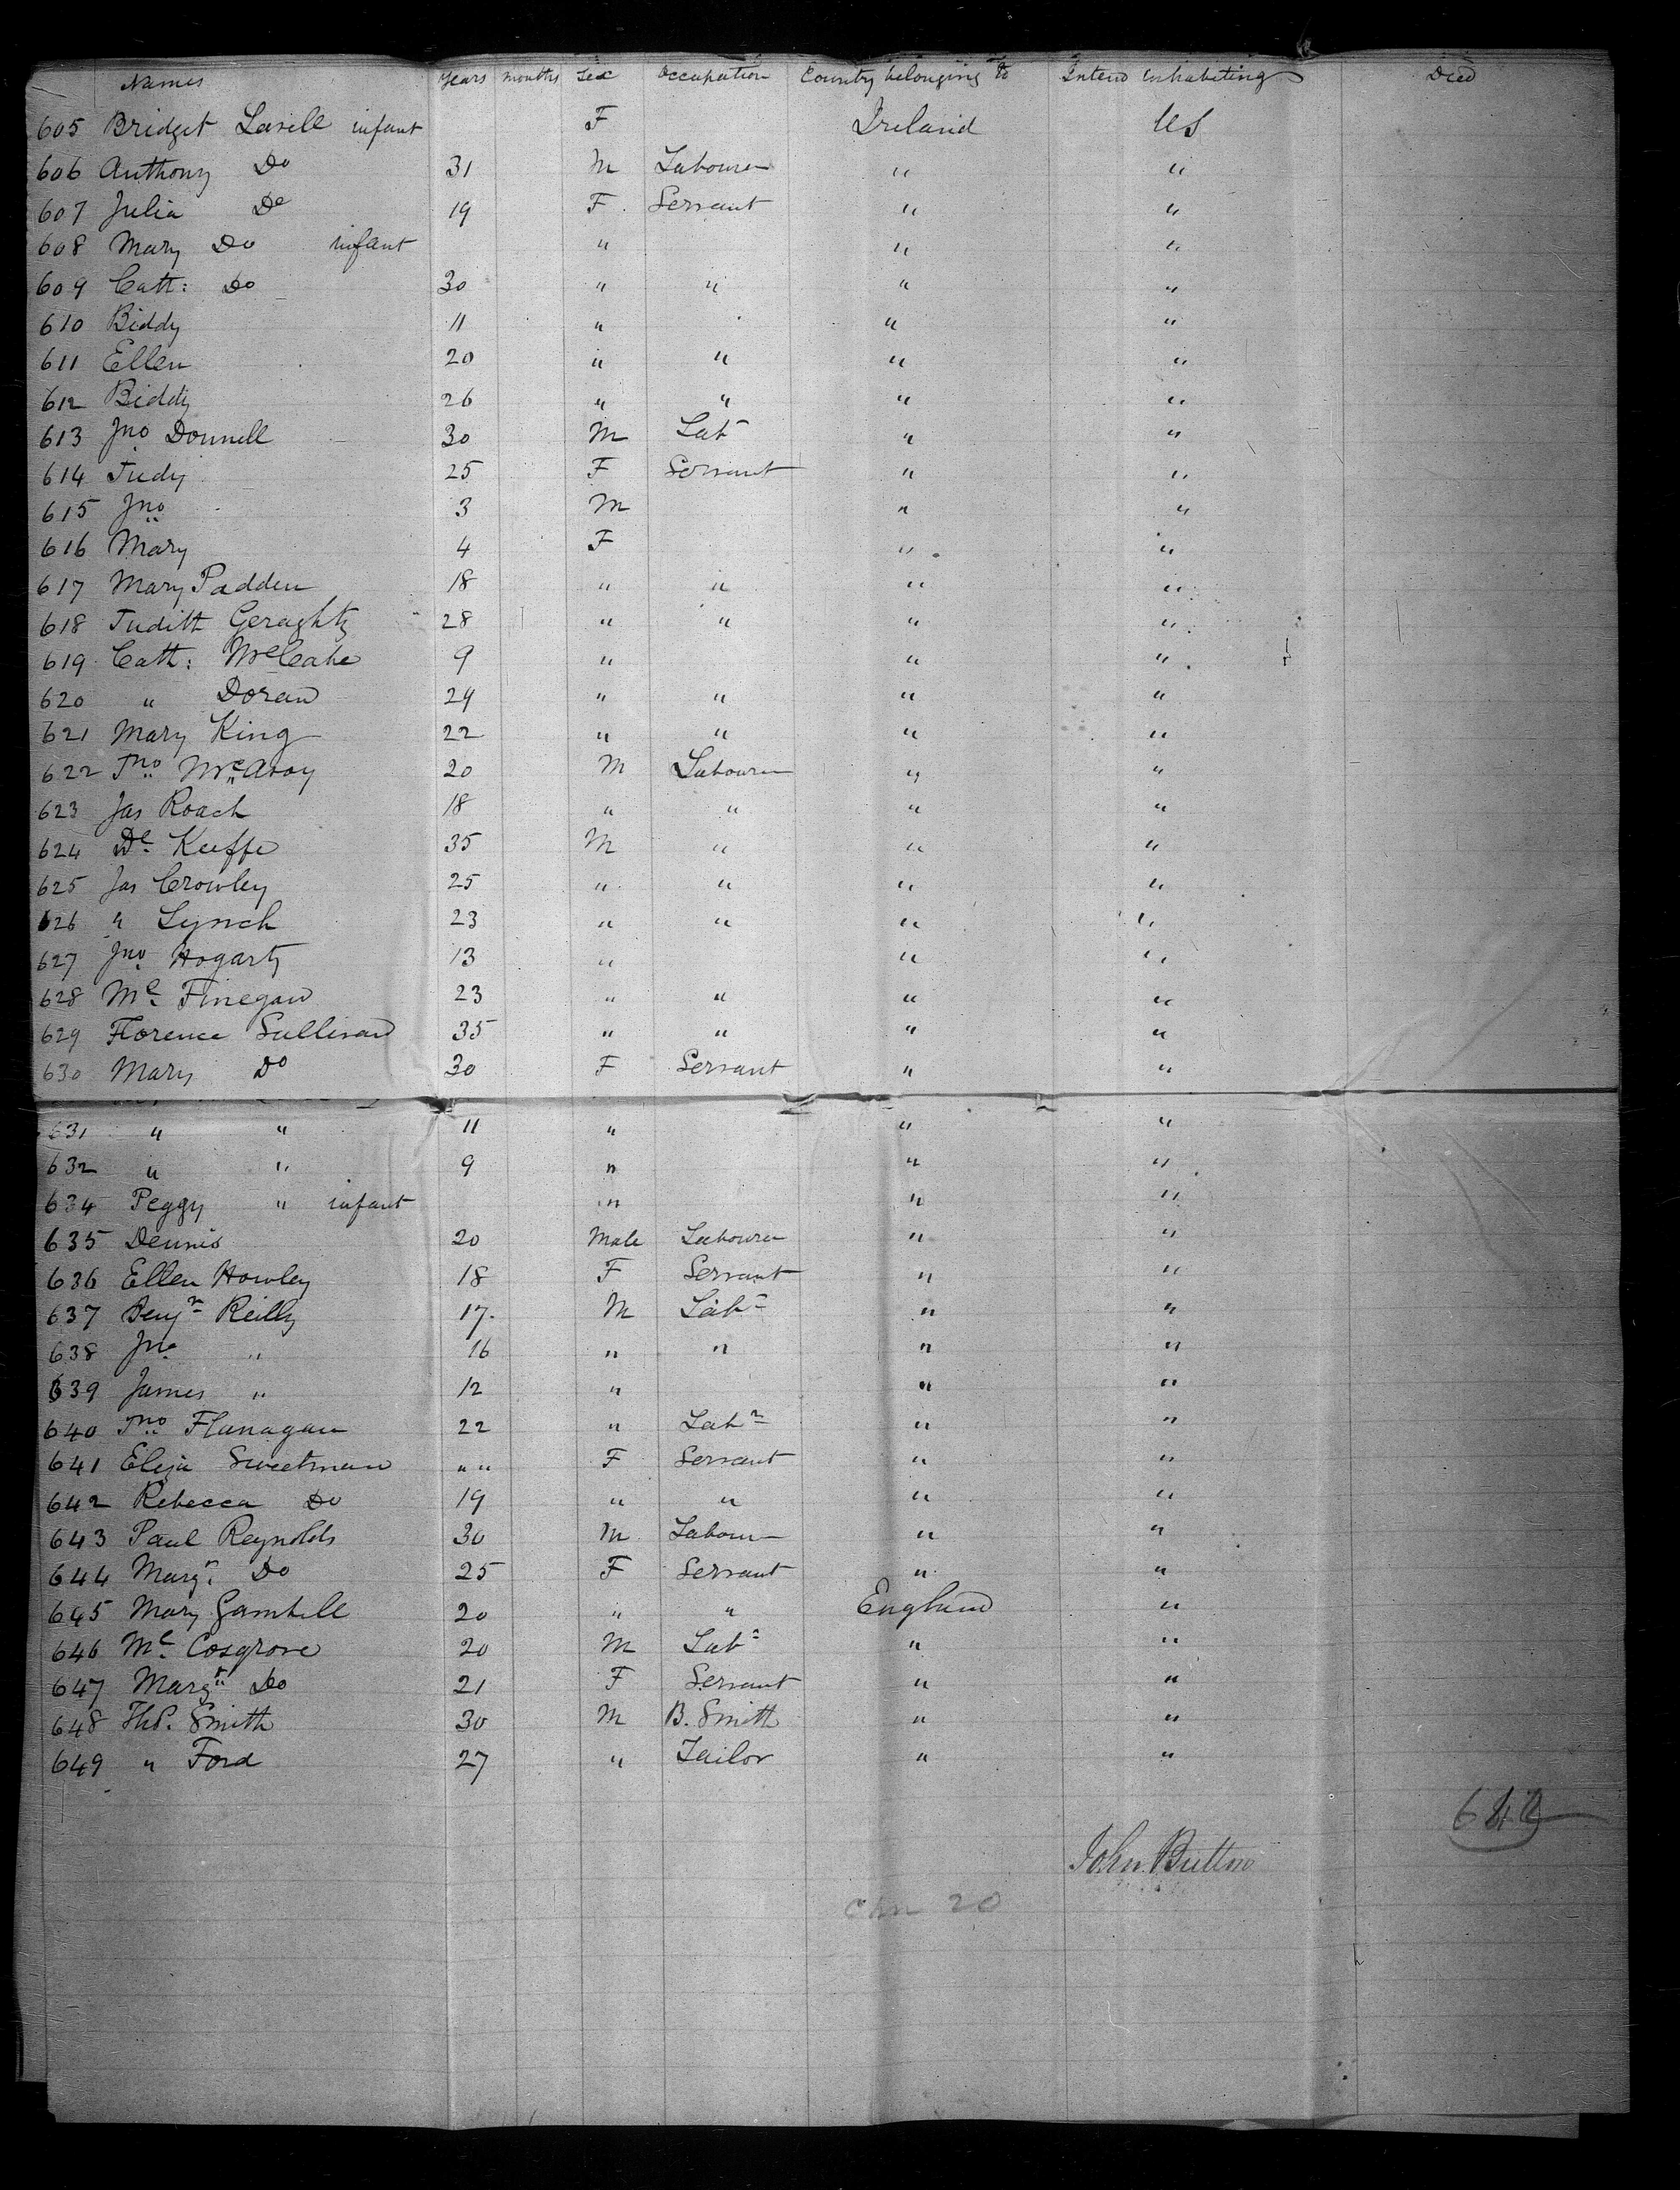 Names Years months Sex Occupation Country belonging to Intend inhabiting Died
605 Bridget Lavell infant F Ireland US
606 Anthony Do 31 M Labourer " "
607 Julia Do 19 F Servant " "
608 Mary Do infant " " "
609 Cath: Do 30 " " " "
610 Biddy 11 " " "
611 Ellen 20 " " " "
612 Biddy 26 " " " "
613 Jno Donnell 30 M Labr " "
614 Judy 25 F Servant " "
615 Jno 3 M " "
616 Mary 4 F " "
617 Mary Padden 18 " " " "
618 Judith Geraghty 28 " " " "
619 Cath: McCabe 9 " " "
620 " Doran 24 " " " "
621 Mary King 22 " " " "
622 Jno McAvoy 20 M Labourer " "
623 Jas Roach 18 " " " "
624 Dl Keeffe 35 M " " "
625 Jas Crowley 25 " " " "
626 " Lynch 23 " " " "
627 Jno Hogarty 13 " " "
628 Ml Finegan 23 " " " "
629 Florence Sullivan 35 " " " "
630 Mary Do 30 F Servant " "
631 " " 11 " " "
632 " " 9 " " "
634 Peggy " infant " " "
635 Dennis 20 Male Labourer " "
636 Ellen Howley 18 F Servant " "
637 Benjn Reilly 17. M Labr " "
638 Jno " 16 " " " "
639 James " 12 " " "
640 Jno Flanagan 22 " Labr " "
641 Eliza Sweetman " " F Servant " "
642 Rebecca Do 19 " " " "
643 Paul Reynolds 30 M Labour " "
644 Margt Do 25 F Servant " "
645 Mary Gambell 20 " " England "
646 Ml Cosgrove 20 M Labr " "
647 Margt Do 21 F Servant " "
648 Ths. Smith 30 M B. Smith " "
649 " Ford 27 " Tailor " "
John Button
20